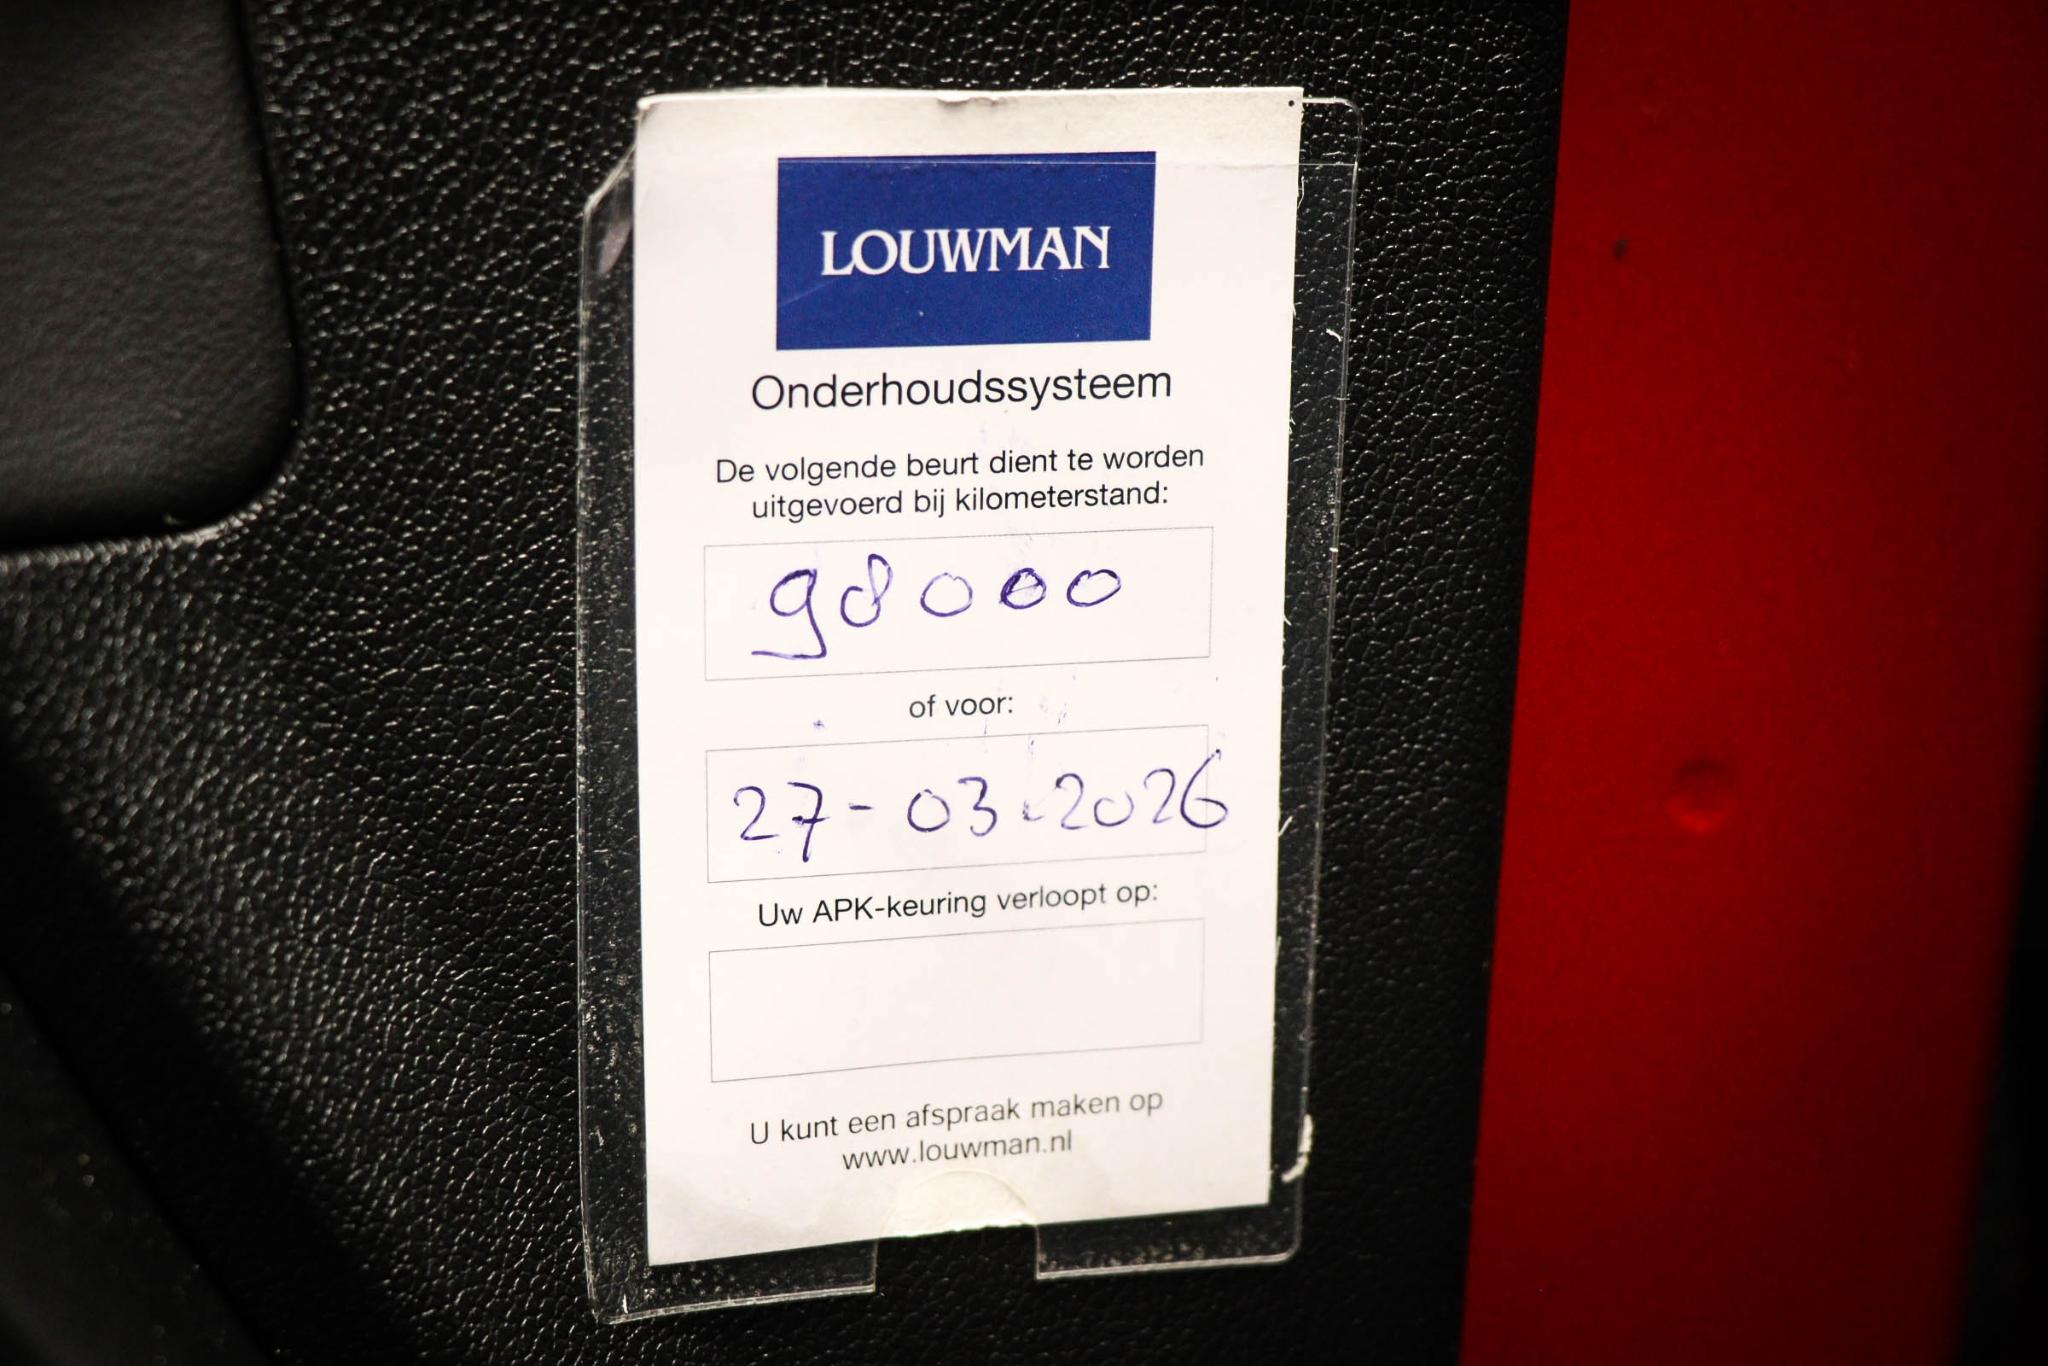 LOUWMAN
Onderhoudssysteem
De volgende beurt dient te worden
uitgevoerd bij kilometerstand:
98000
of voor:
27-03-2026
Uw APK-keuring verloopt op:
U kunt een afspraak maken op
www.louwman.nl